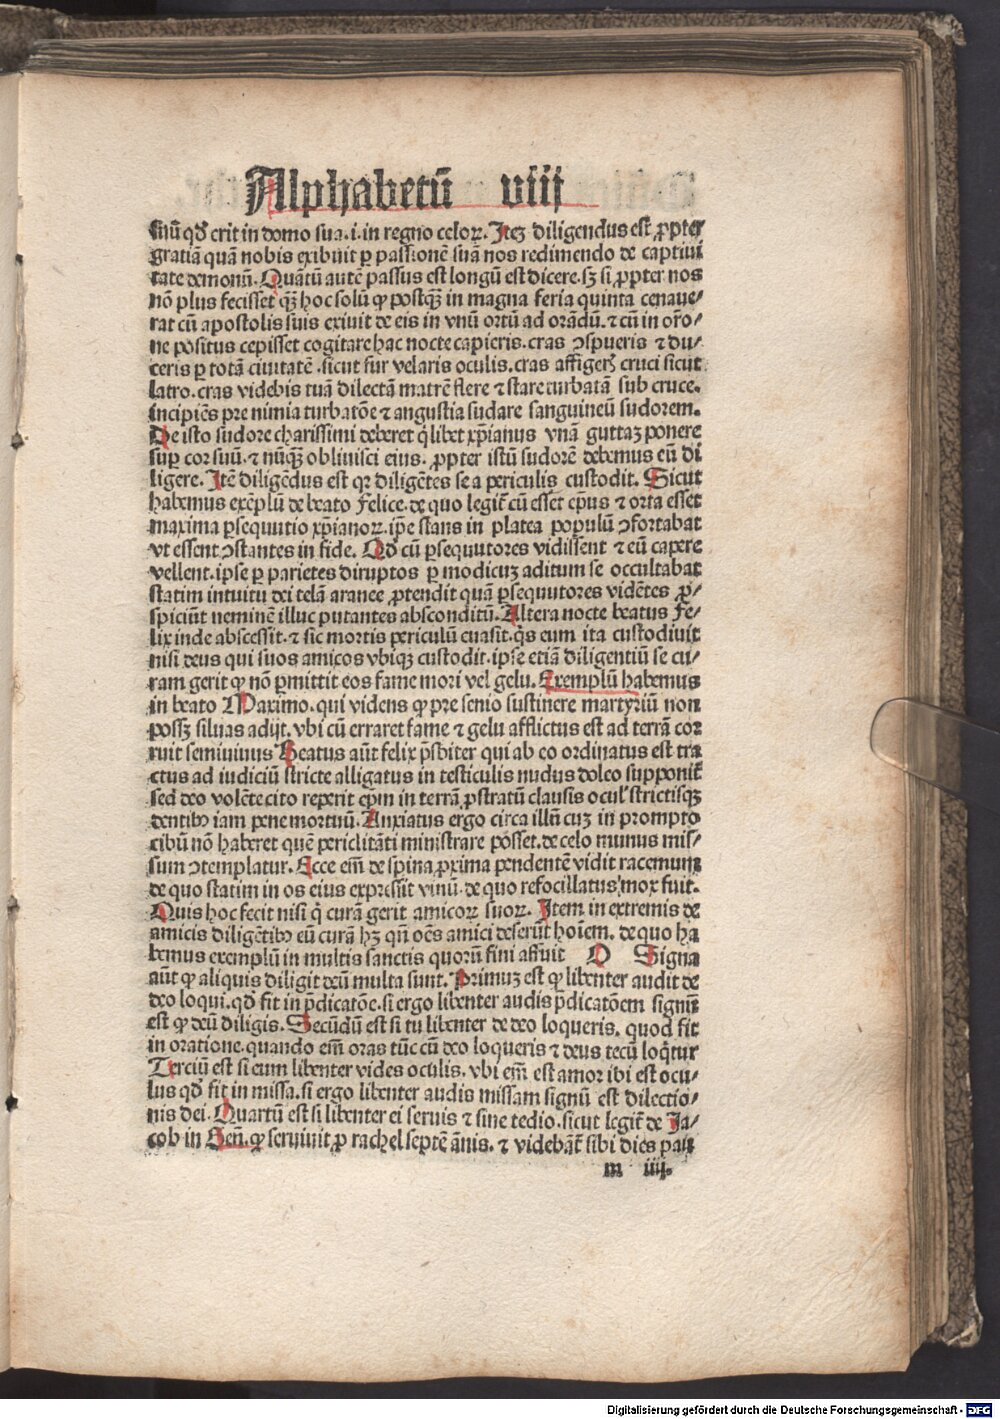 Alphabetū viij
suū qď erit in domo sua .i. in regno celoꝝ. Iteꝫ diligendus est ꝓpter
gratiā quā nobis exibuit ꝑ passionē suā nos redimendo de captiui
tate demonū. Quātū autē passus est longū est dicere. sꝫ si ꝓpter nos
nō plus fecisset qꝫ̄ hoc solū ꝙ postqꝫ̄ in magna feria quinta cenaue/
rat cū apostolis suis exiuit de eis in vnū ortū ad orādū. ⁊ cū in oro̅/
ne positus cepisset cogitare hac nocte capieris. cras ꝯspueris ⁊ du/
ceris ꝑ totā ciuitatē. sicut fur velaris oculis. cras affigeris cruci sicut
latro. cras videbis tuā dilectā matrē flere ⁊ stare turbatā sub cruce.
incipiēs pre nimia turbatōe ⁊ angustia sudare sanguineū sudorem.
De isto sudore charissimi deberet q̇libet xp̄ianus vnā guttaꝫ ponere
suꝑ cor suū. ⁊ nūqꝫ̄ obliuisci eius. ꝓpter istū sudorē debemus eū di
ligere. Itē diligēdus est qꝛ diligētes se a periculis custodit. Sicut
habemus exēplū de beato Felice. de quo legit̄ cū esset ep̄us ⁊ orta esset
maxima ꝑsequutio xp̄ianoꝝ. ip̄e stans in platea populū ꝯfortabat
vt essent ꝯstantes in fide. Qď cū ꝑsequutores vidissent ⁊ eū capere
vellent. ipse ꝑ parietes diruptos ꝑ modicuꝫ aditum se occultabat
statim intuitu dei telā aranee ꝓtendit quā ꝑsequutores vidētes ꝓ/
spiciūt neminē illuc putantes absconditū. Altera nocte beatus Fe/
lix inde abscessit. ⁊ sic mortis periculū euasit. q̇s eum ita custodiuit
nisi deus qui suos amicos vbiqꝫ custodit. ipse etiā diligentiū se cu/
ram gerit ꝙ nō ꝑmittit eos fame mori vel gelu. Exemplū habemus
in beato Maximo. qui videns ꝙ pre senio sustinere martyriū non
possꝫ siluas adijt. vbi cū erraret fame ⁊ gelu afflictus est ad terrā cor
ruit semiuiuus Beatus aūt felix p̄sbiter qui ab eo ordinatus est tra
ctus ad iudiciū stricte alligatus in testiculis nudus doleo supponit̄
sed deo volēte cito reperit ep̄m in terrā ꝓstratū clausis ocul' strictisqꝫ
dentibꝰ iam pene mortuū. Anxiatus ergo circa illū cuꝫ in prompto
cibū nō haberet quē periclitāti ministrare posset. de celo munus mis/
sum ꝯtemplatur. Ecce em̄ de spina ꝓxima pendentē vidit racemum
de quo statim in os eius expressit vinū. de quo refocillatus mox fuit.
Quis hoc fecit nisi q̇ curā gerit amicoꝝ suoꝝ. Item in extremis de
amicis diligētibꝰ eū curā hꝫ qn̄ oēs amici deserūt hoīem. de quo ha
bemus exemplū in multis sanctis quorū fini affuit O Signa
aūt ꝙ aliquis diligit deū multa sunt. Primuꝫ est ꝙ libenter audit de
deo loqui. qď fit in p̄dicatōe. si ergo libenter audis p̄dicatōem signū
est ꝙ deū diligis. Secūdū est si tu libenter de deo loqueris. quod fit
in oratione. quando em̄ oras tūc cū deo loqueris ⁊ deus tecū loq̇tur
Terciū est si eum libenter vides oculis. vbi em̄ est amor ibi est ocu/
lus qď fit in missa. si ergo libenter audis missam signū est dilectio/
nis dei. Quartū est si libenter ei seruis ⁊ sine tedio. sicut legit̄ de Ja/
cob in Gen. ꝙ seruiuit ꝓ rachel septē ānis. ⁊ videbāt̄ sibi dies pau
m iiij.
Digitalisierung gefördert durch die Deutsche Forschungsgemeinschaft - DFG